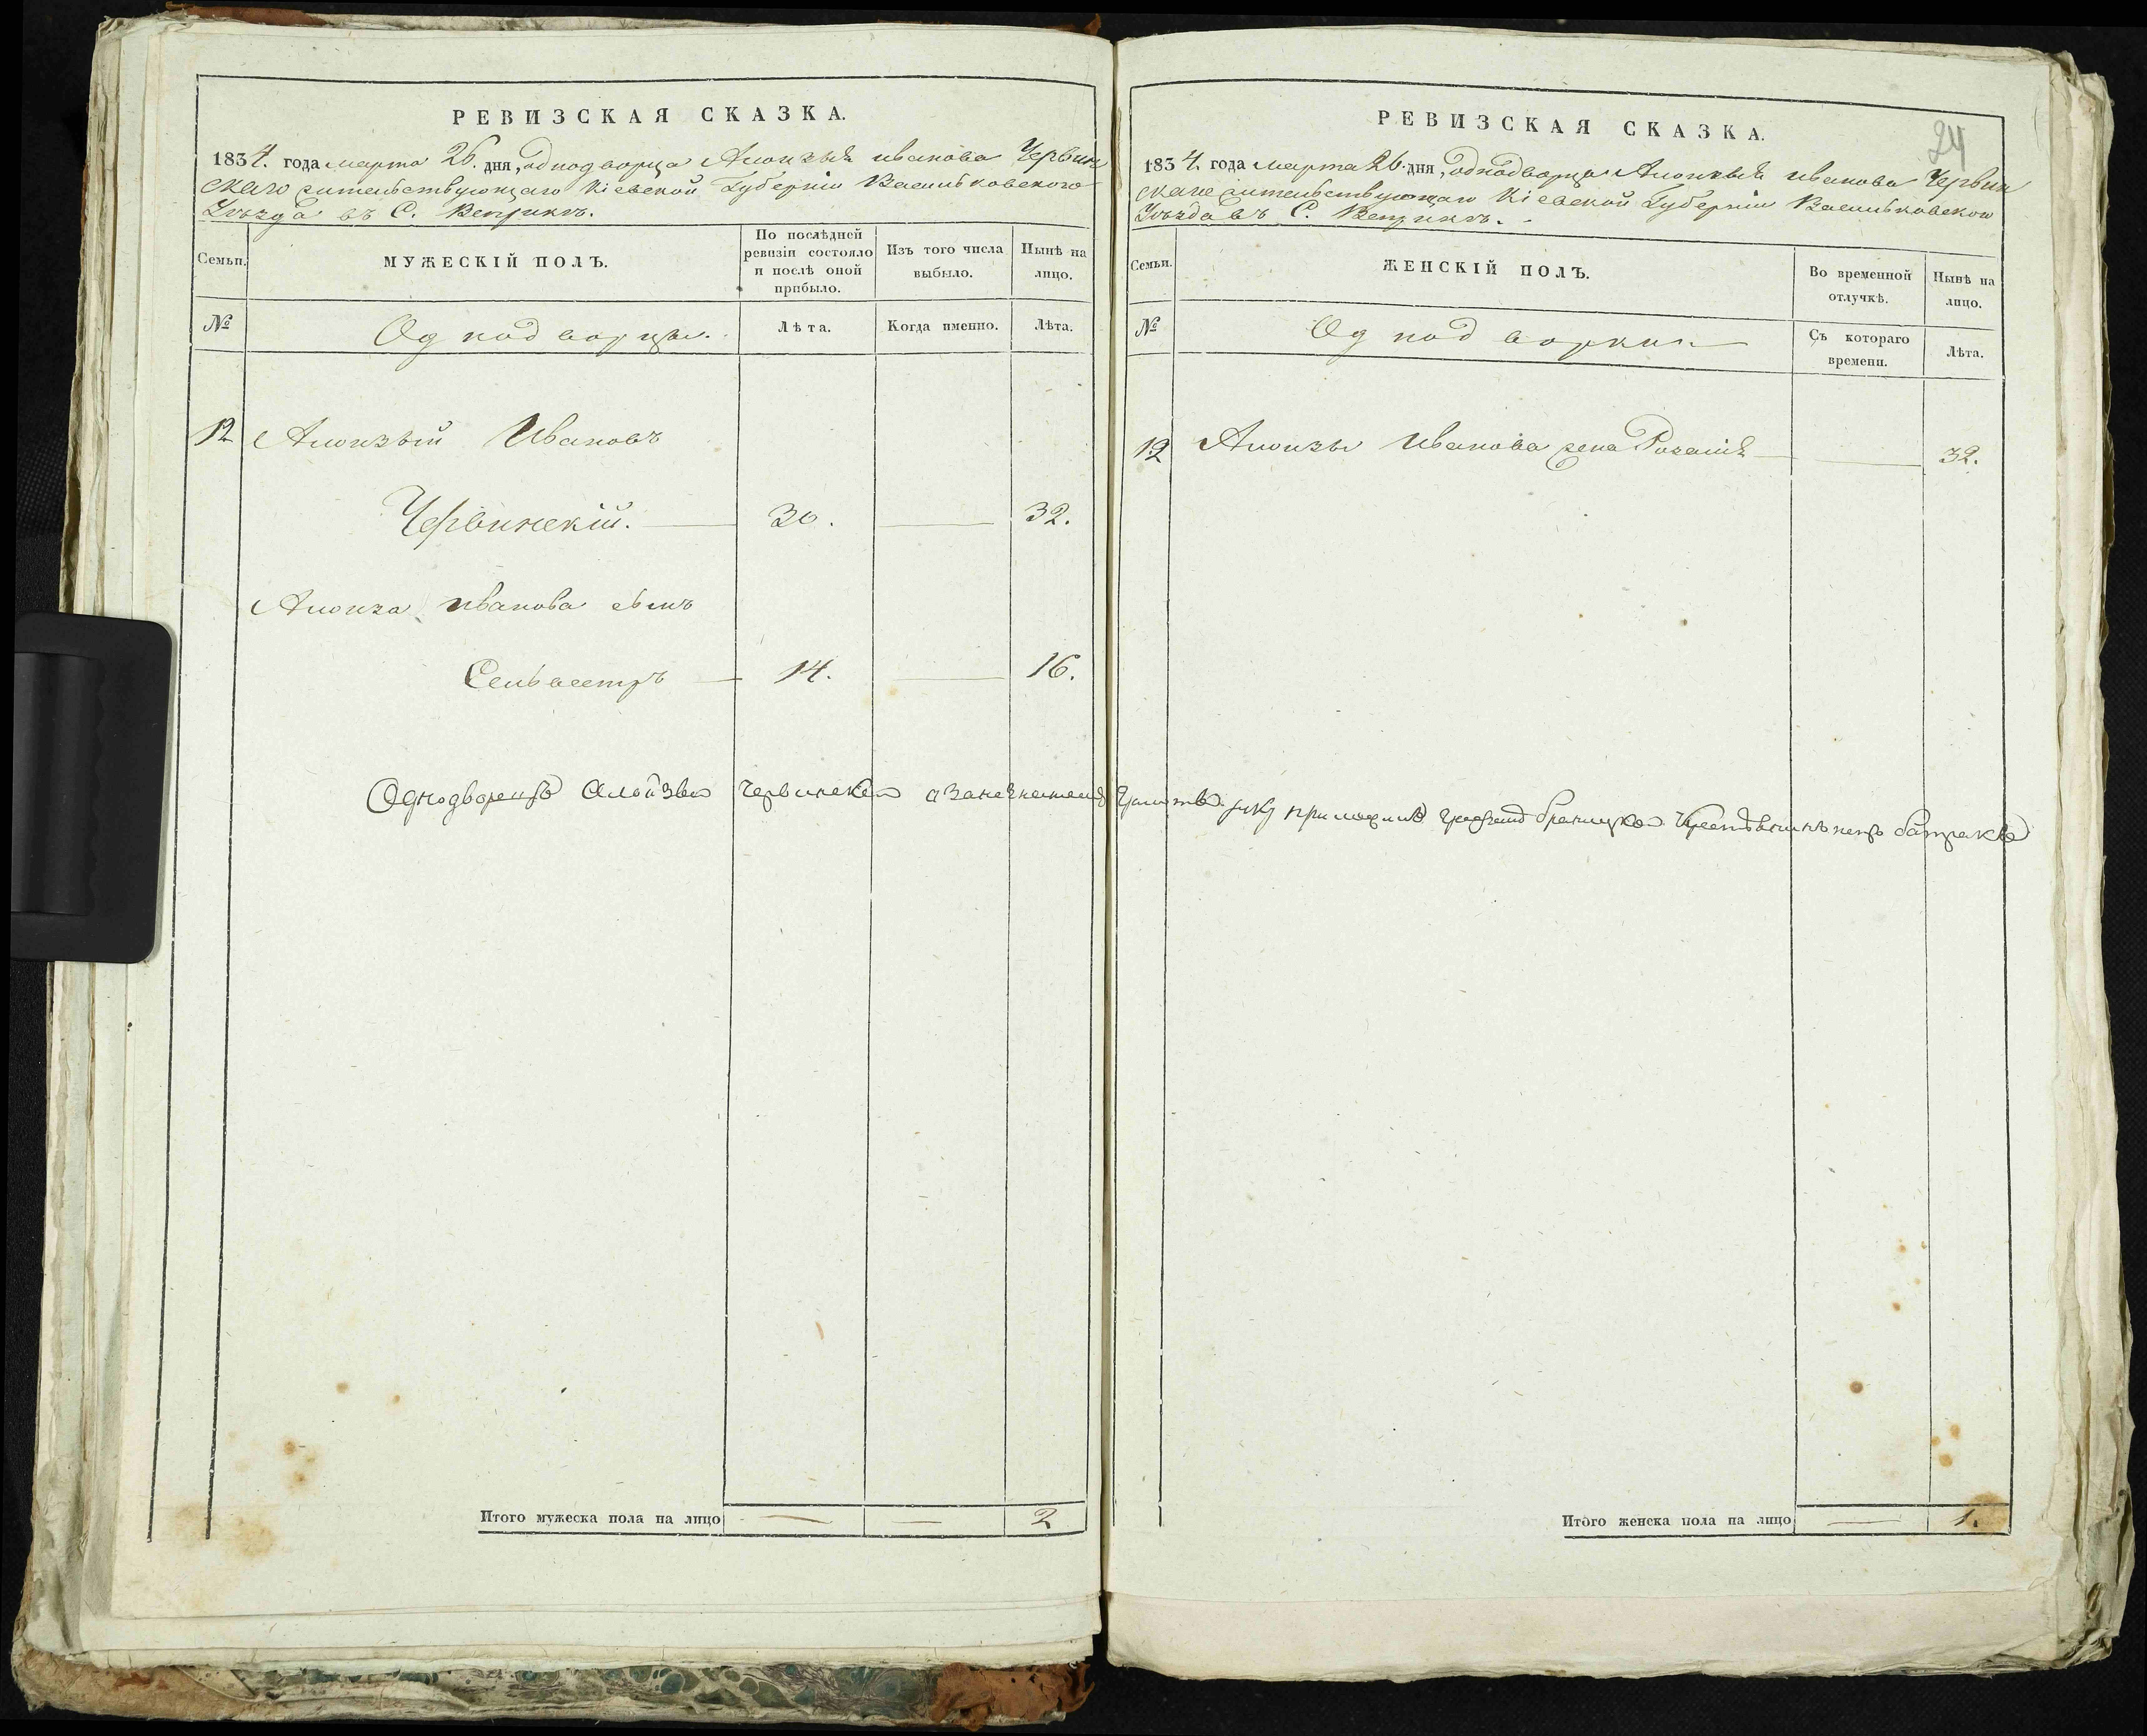 РЕВИЗСКАЯ СКАЗКА.
1834. года марта 26. дня, однодворца Алоизыя иванова Червин
скаго жительствующаго Кіевской Губерніи Васильковского
Уѣзда въ С. Веприкъ.
Семьи.
МУЖЕСКІЙ ПОЛЪ.
По послѣдней ревизіи состояло и послѣ оной прибыло.
Изъ того числа выбыло.
Нынѣ на лицо.
№
Однодворцы.
Лѣта.
Когда именно.
Лѣта.
12 Алоизый Ивановъ
Червинскій. 30. 32.
Алоиза иванова сынъ
Сельвестръ 14. 16.
Однодворецъ Алойзый Червинский а за него неграмотного руку приложилъ
Итого мужеска пола на лицо 2
РЕВИЗСКАЯ СКАЗКА.
24
1834. года марта 26. дня, однодворца Алоизыя иванова Червин
скаго жительствующаго Кіевской Губерніи Васильковского
Уѣзда въ С. Веприкъ.
Семьи.
ЖЕНСКІЙ ПОЛЪ.
Во временной отлучкѣ.
Нынѣ на лицо.
№
Однодворки
Съ котораго времени.
Лѣта.
12 Алоизы Иванова жена Розалія 32.
Итого женска пола на лицо 1.